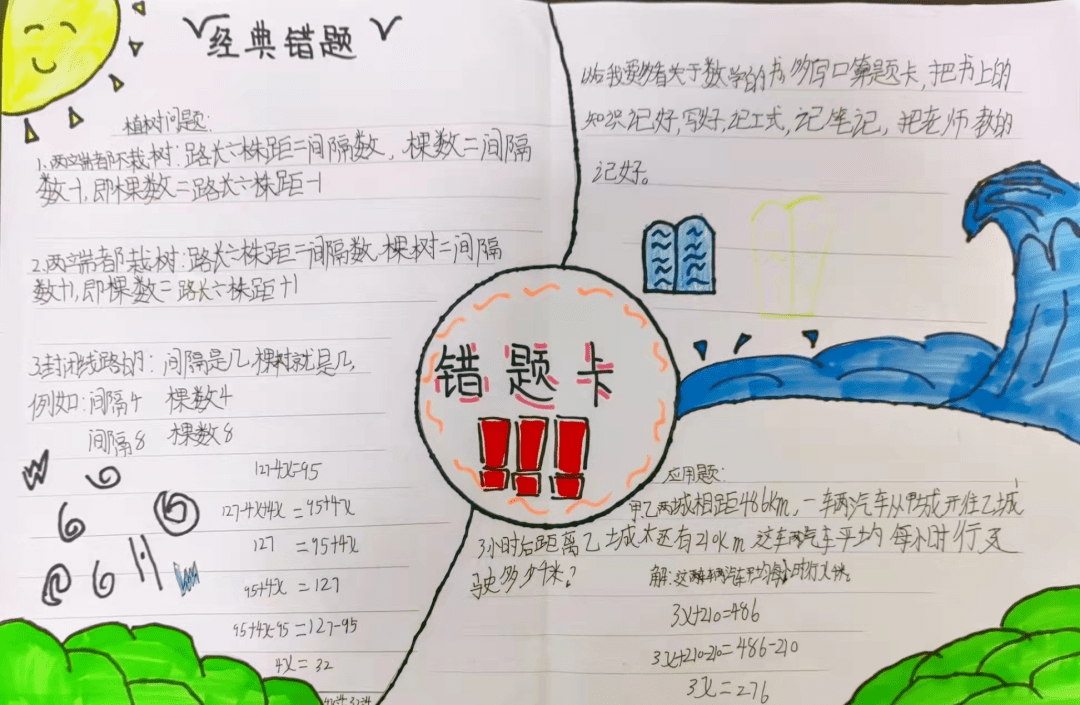 经典错题
植树问题:
1.两端都不栽树:路长÷株距=间隔数,棵数=间隔
数-1,即棵数=路长÷株距-1
2.两端都栽树:路长÷株距=间隔数.棵树=间隔
数+1,即棵数=路长÷株距+1
3封闭线路的:间隔是几,棵树就是几,
例如:间隔4 棵数4
间隔8 棵数8
127-4x=95
127-4x+4x=95+4x
127=95+4x
95+4x=127
95+4x-95=127-95
4x=32
4x÷4=32÷4
错题卡
!!!
以后我要多看关于数学的书,多写口算题卡,把书上的
知识记好,写好,记工式,记笔记,把老师教的
记好。
应用题:
甲乙两城相距486km,一辆汽车从甲城开往乙城
3小时后距离乙城还有210km这辆汽车平均每小时行
驶多少千米?
解:这辆汽车平均每小时行x千米.
3x+210=486
3x+210-210=486-210
3x=276